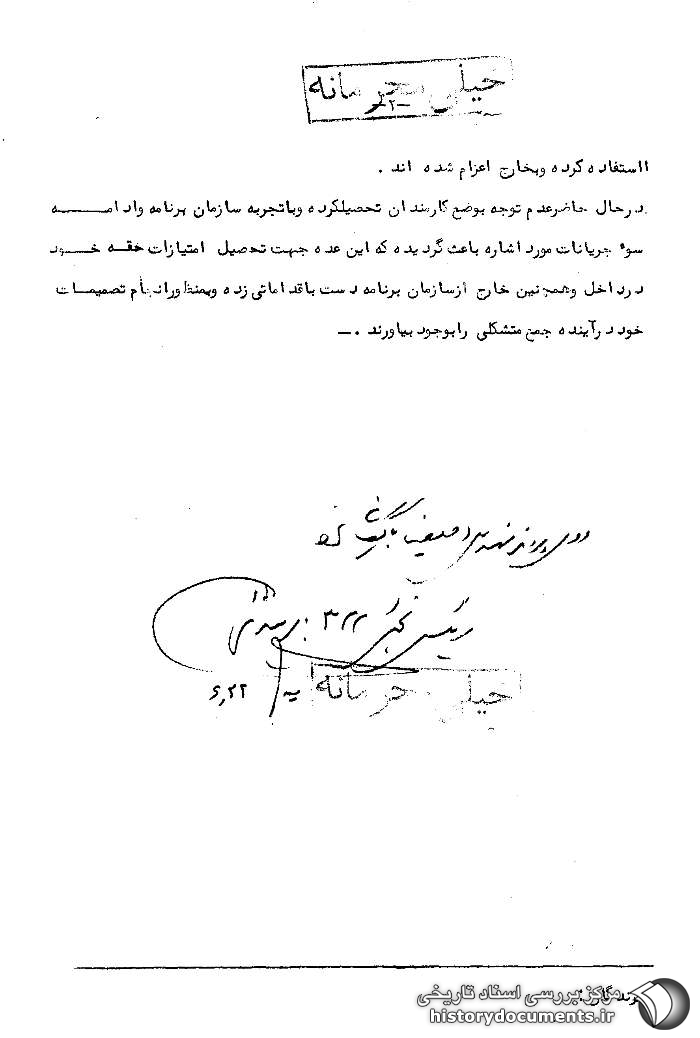 خیلی محرمانه
-۲-
ااستفاده کرده وبخارج اعزام شده اند .
درحال حاضرعدم توجه بوضع کارمندان تحصیلکرده وباتجربه سازمان برنامه وادامه
سوء جریانات مورد اشاره باعث گردیده که این عده جهت تحصیل امتیازات حقه خود
درداخل وهمچنین خارج ازسازمان برنامه دست باقداماتی زده وبمنظورانجام تصمیمات
خود درآینده جمع متشکلی رابوجود بیاورند .ـ
رئیس بخش ۳۲۲
۶٫۲۲
خیلی محرمانه
مرکز بررسی اسناد تاریخی
historydocuments.ir